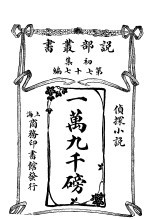 說部叢書
初集
第七十七編
偵探小說
一萬九千磅
上海商務印書館發行